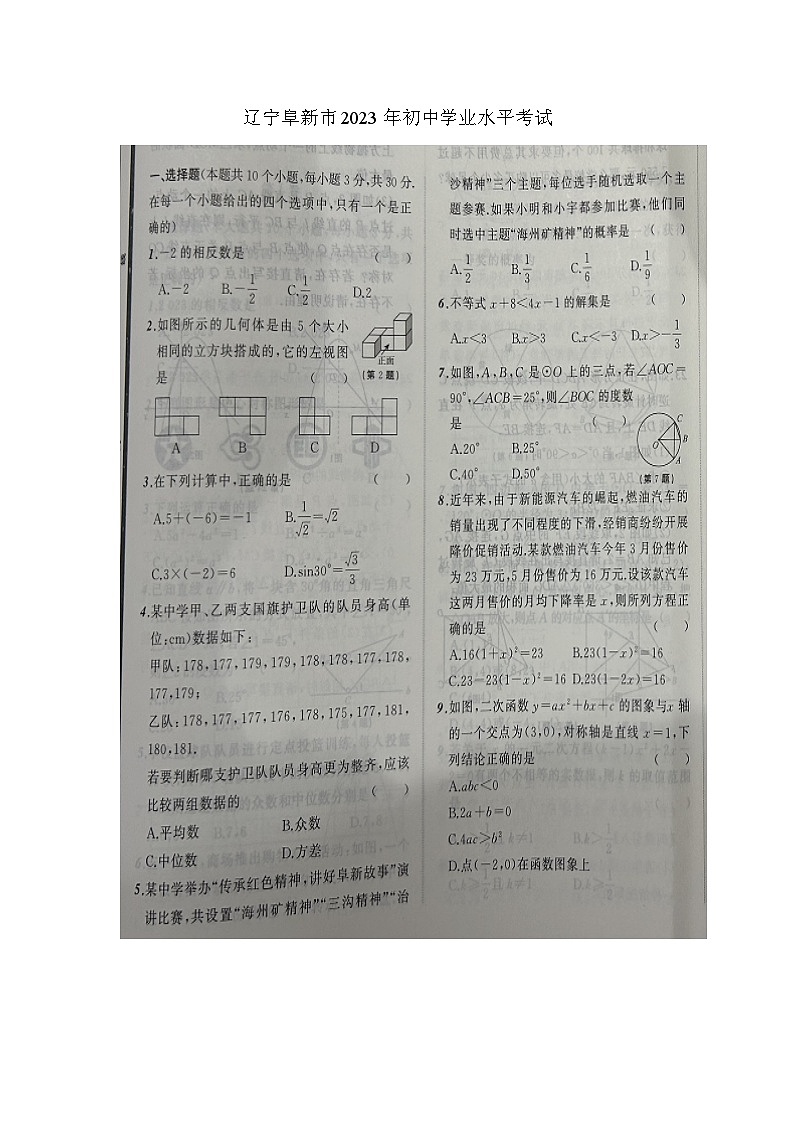 辽宁阜新市2023 年初中学业水平考试
一、选择题(本题共10个小题,每小题3分,共30分.
在每一个小题给出的四个选项中,只有一个是正
确的)
1.-2的相反数是 ( )
A.-2 B.-1/2 C.1/2 D.2
2.如图所示的几何体是由 5 个大小
相同的立方块搭成的,它的左视图
是 ( )
正面
(第2题)
A B C D
3.在下列计算中,正确的是 ( )
A.5+(-6)=-1 B.1/√2=√2
C.3×(-2)=6 D.sin30°=√3/3
4.某中学甲、乙两支国旗护卫队的队员身高(单
位:cm)数据如下:
甲队:178,177,179,179,178,178,177,178,
177,179;
乙队:178,177,177,176,178,175,177,181,
180,181.
若要判断哪支护卫队队员身高更为整齐,应该
比较两组数据的 ( )
A.平均数 B.众数
C.中位数 D.方差
5.某中学举办“传承红色精神,讲好阜新故事”演
讲比赛,共设置“海州矿精神”“三沟精神”“治
沙精神”三个主题,每位选手随机选取一个主
题参赛.如果小明和小宇都参加比赛,他们同
时选中主题“海州矿精神”的概率是 ( )
A.1/2 B.1/3 C.1/6 D.1/9
6.不等式x+8<4x-1的解集是 ( )
A.x<3 B.x>3 C.x<-3 D.x>-1/3
7.如图,A,B,C 是⊙O 上的三点,若∠AOC=
90°,∠ACB=25°,则∠BOC的度数
是 ( )
A.20° B.25°
C.40° D.50°
C
O B
A
(第7题)
8.近年来,由于新能源汽车的崛起,燃油汽车的
销量出现了不同程度的下滑,经销商纷纷开展
降价促销活动.某款燃油汽车今年3月份售价
为23万元,5月份售价为16万元.设该款汽车
这两月售价的月均下降率是x,则所列方程正
确的是 ( )
A.16(1+x)²=23 B.23(1-x)²=16
C.23-23(1-x)²=16 D.23(1-2x)=16
9.如图,二次函数y=ax²+bx+c的图象与x轴
的一个交点为(3,0),对称轴是直线x=1,下
列结论正确的是 ( )
A.abc<0
B.2a+b=0
C.4ac>b²
D.点(-2,0)在函数图象上